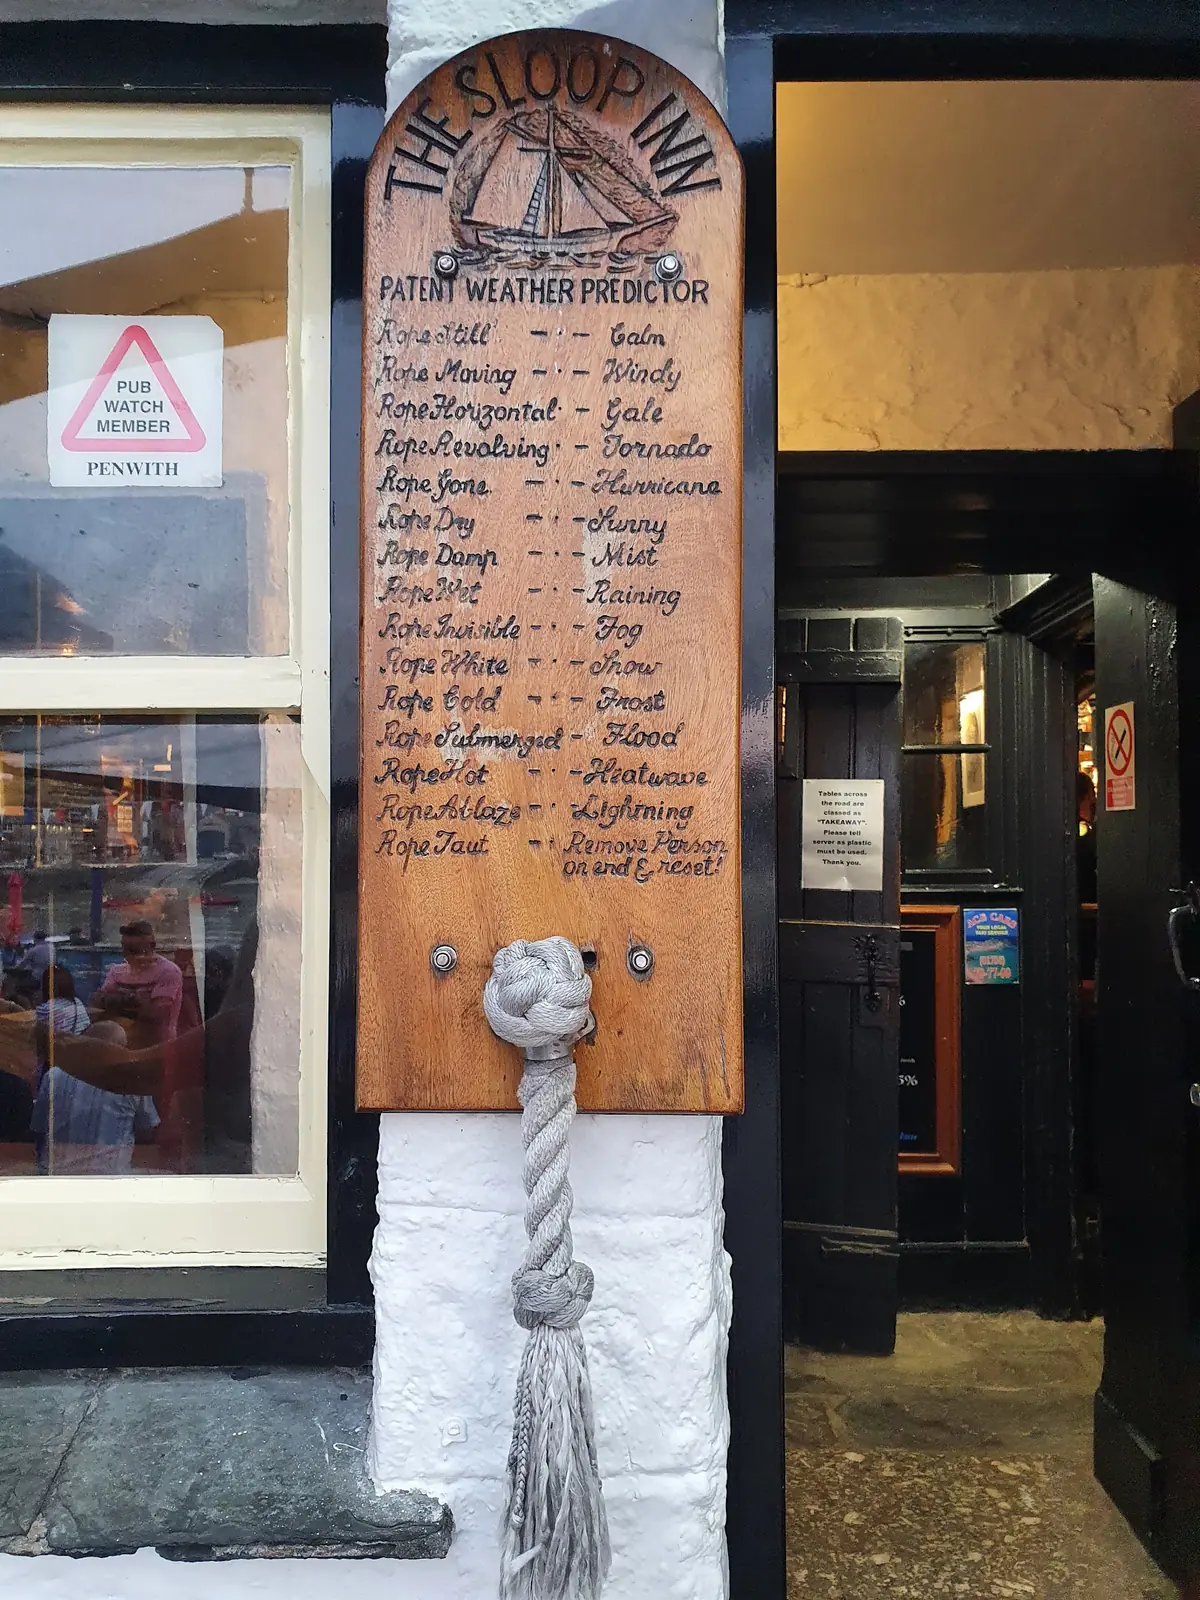 THE SLOOP INN
PATENT WEATHER PREDICTOR
Rope Still - · - Calm
Rope Moving - · - Windy
Rope Horizontal · - Gale
Rope Revolving · - Tornado
Rope Gone - · - Hurricane
Rope Dry - · - Sunny
Rope Damp - · - Mist
Rope Wet - · - Raining
Rope Invisible - · - Fog
Rope White - · - Snow
Rope Cold - · - Frost
Rope Submerged - · - Flood
Rope Hot - · - Heatwave
Rope Ablaze - · - Lightning
Rope Taut - · Remove Person
on end & reset!
PUB
WATCH
MEMBER
PENWITH
Tables across
the road are
classed as
"TAKEAWAY".
Please tell
server as plastic
must be used.
Thank you.
ACE CABS
YOUR LOCAL
TAXI SERVICE
%